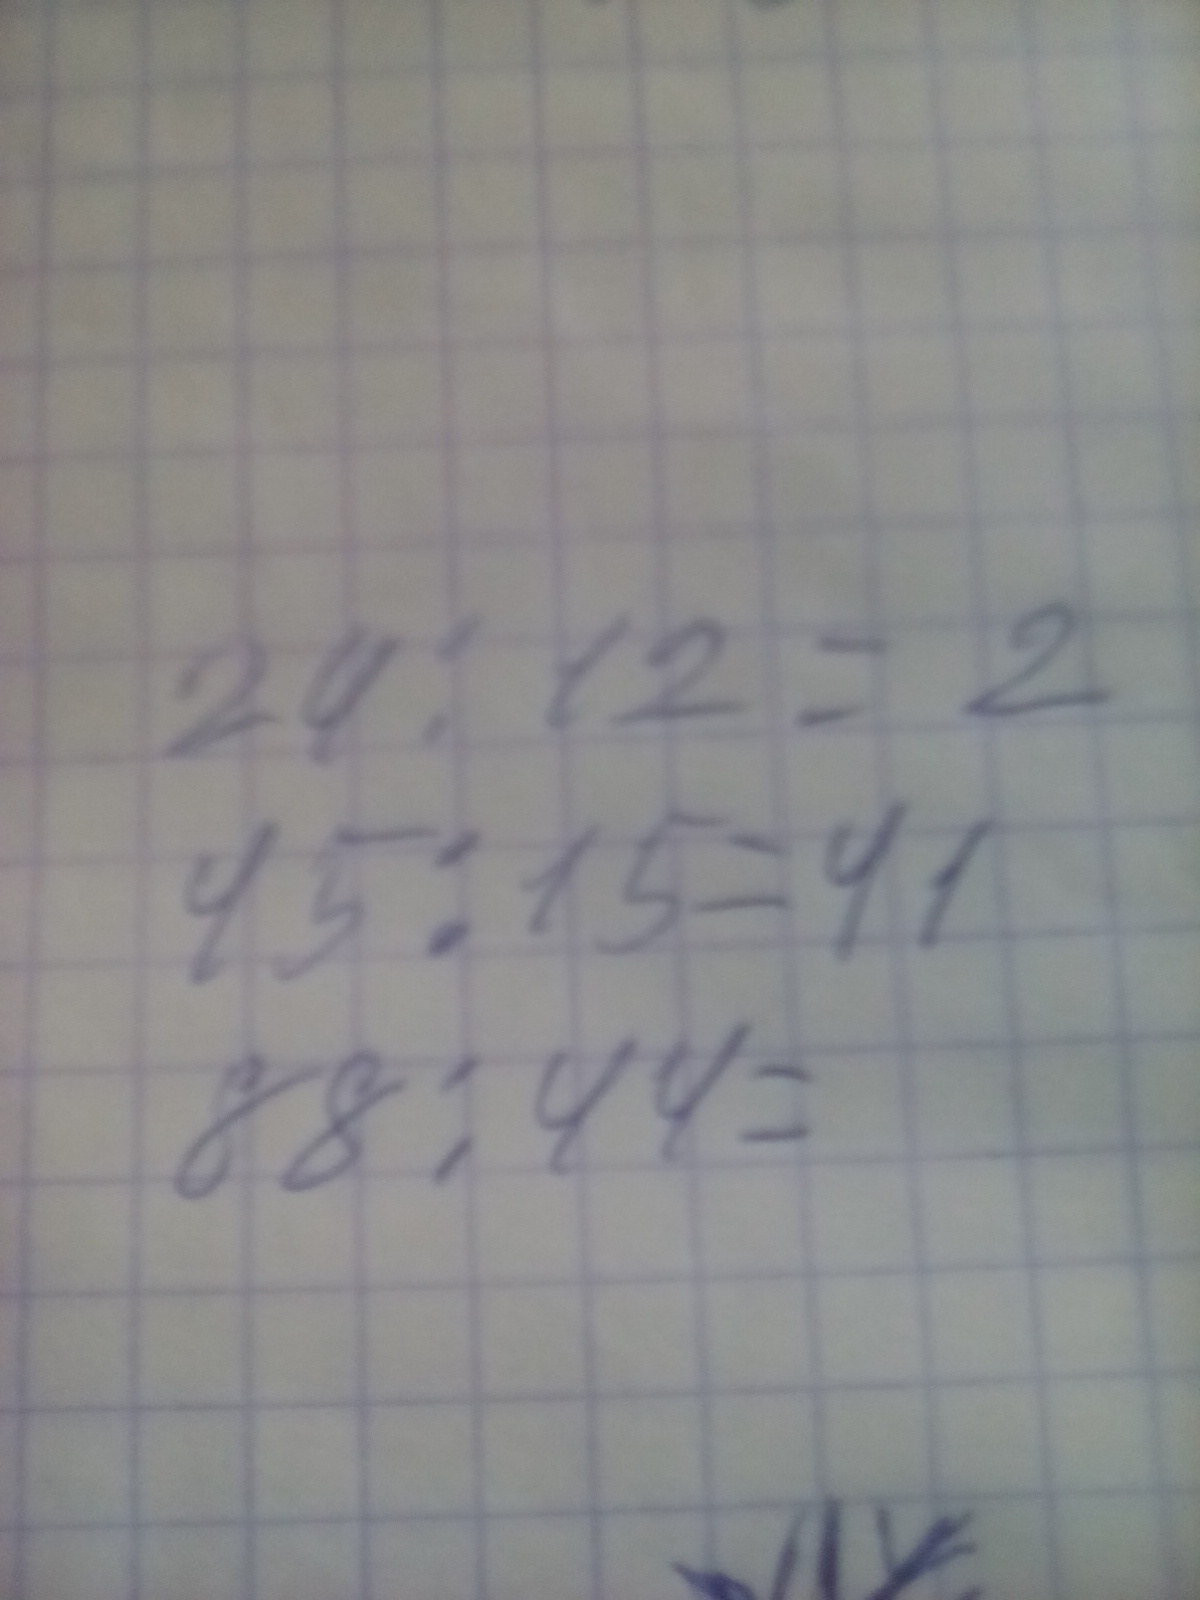 24 : 12 = 2
45 : 15 = 41
88 : 44 =